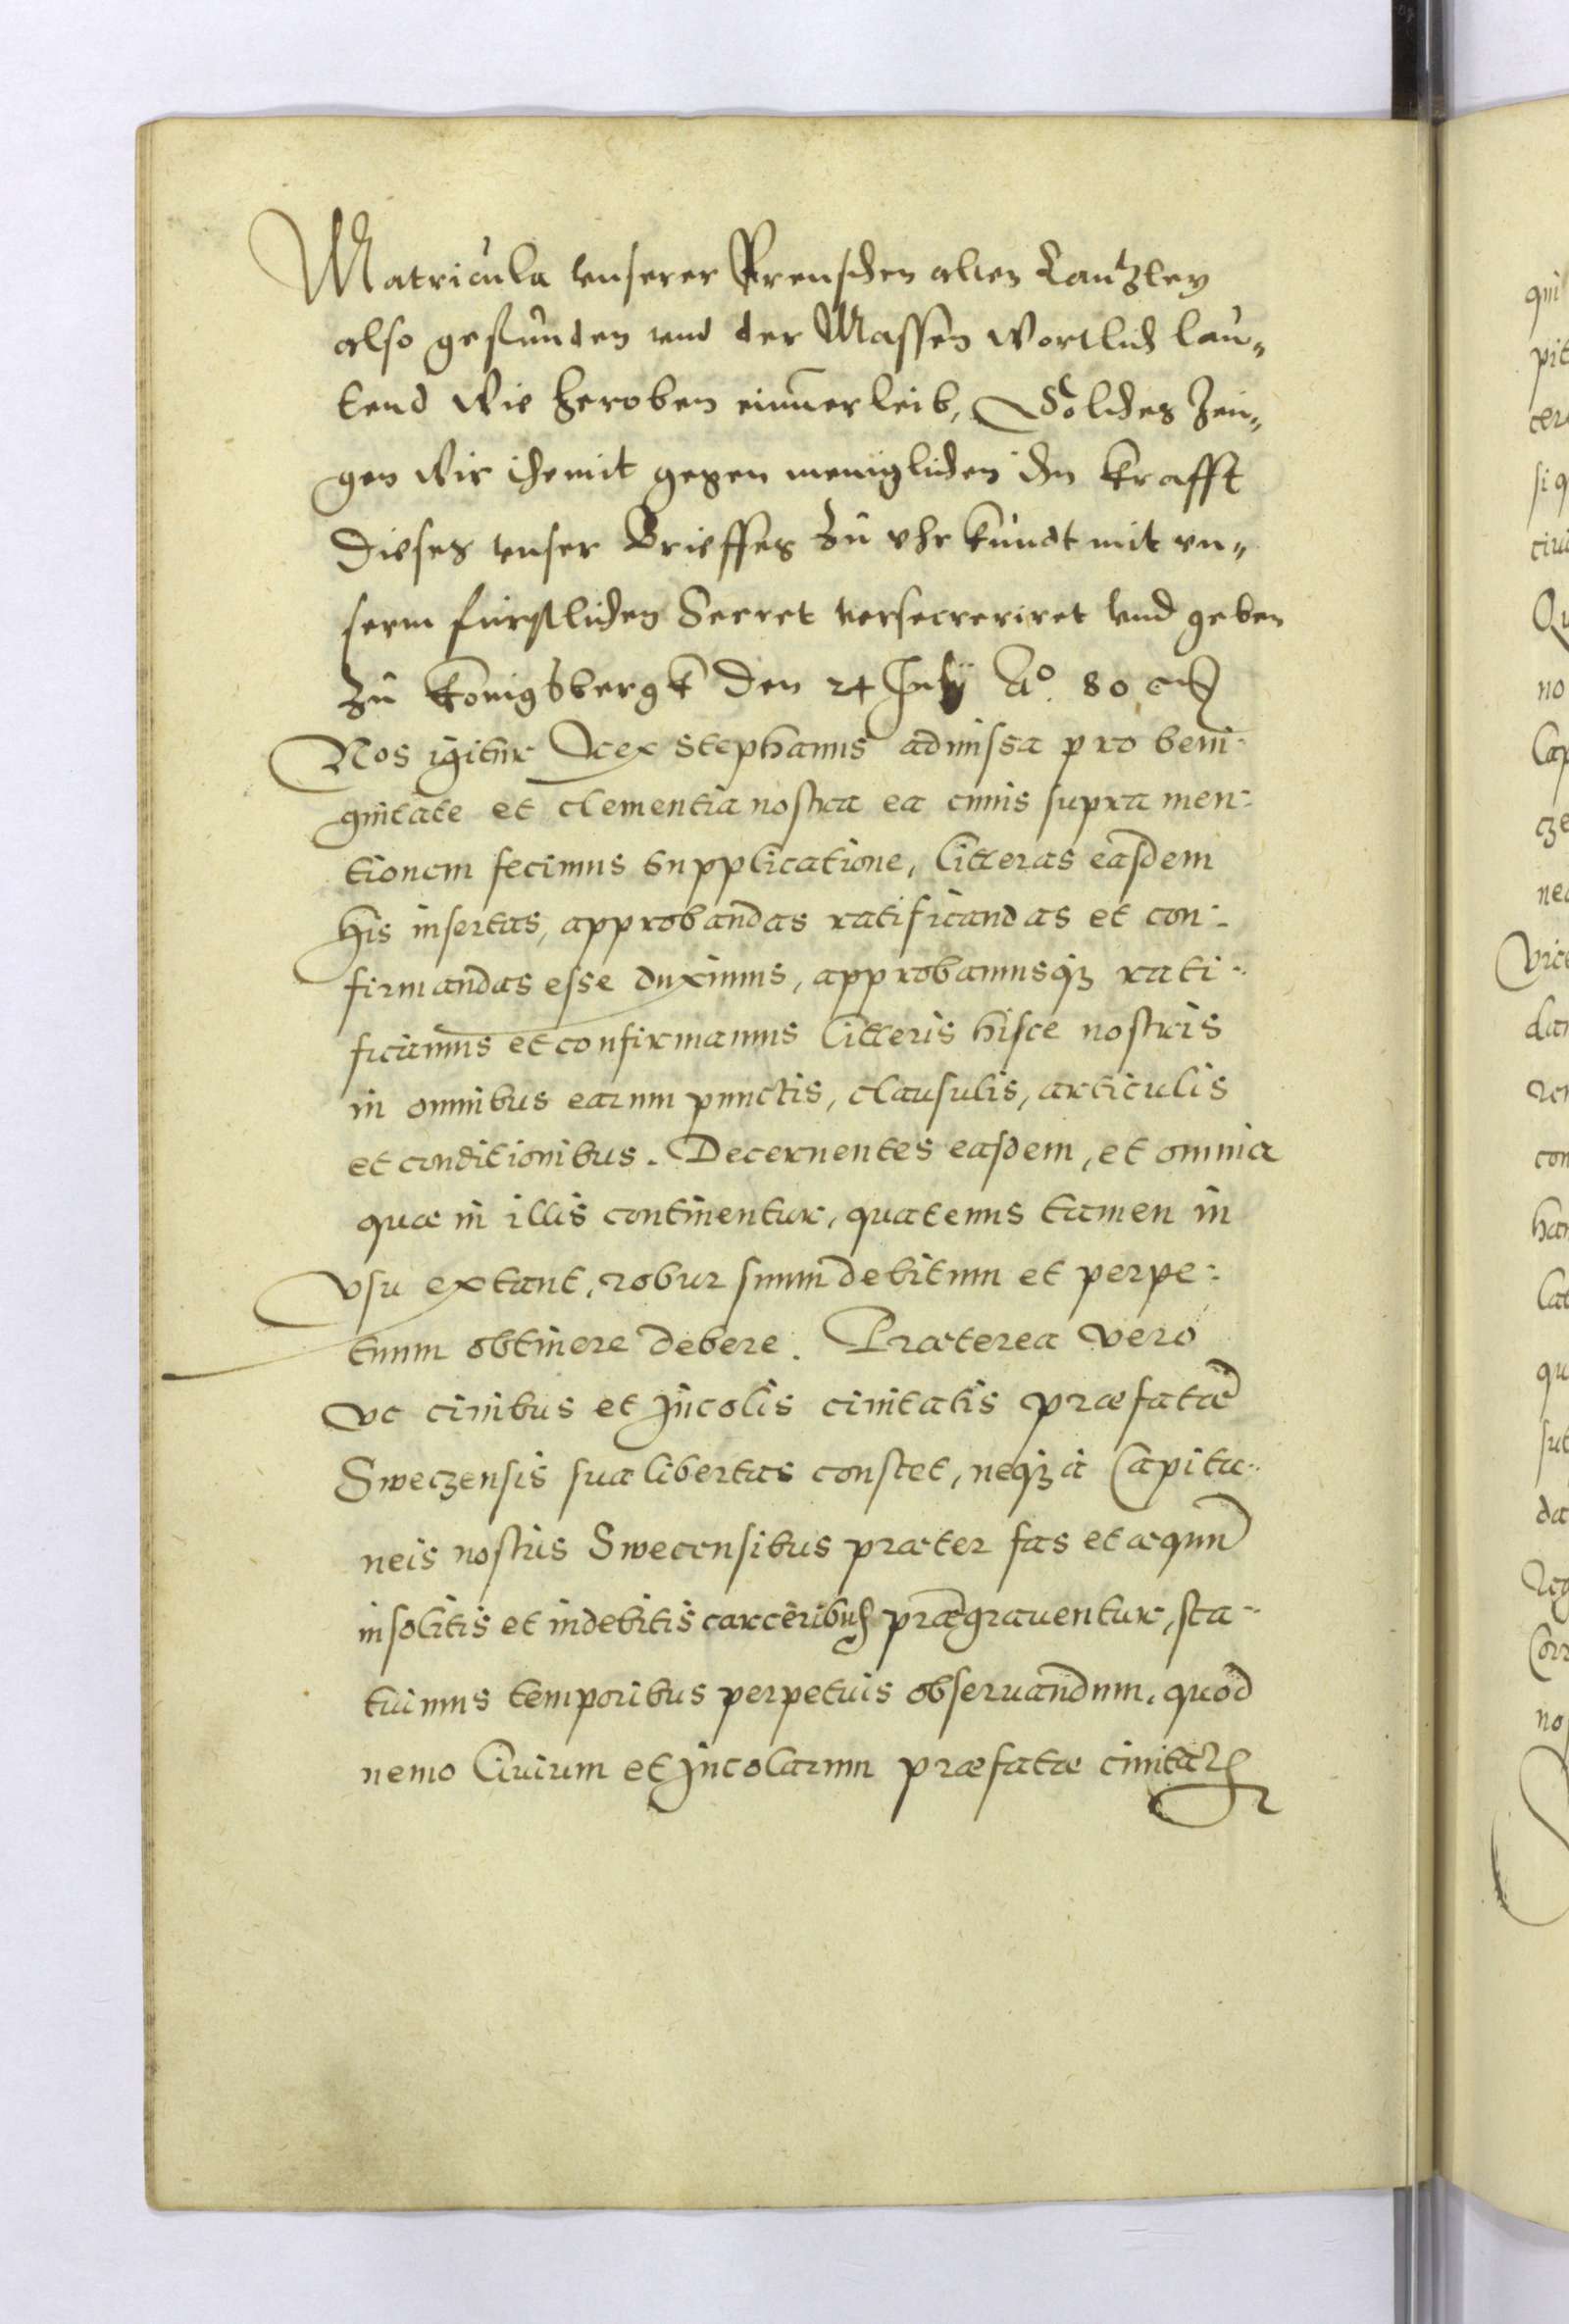 Matricula unserer Preuschen alten Cantzley
also gefunden und der Massen Wortlich lau„
tend Wie heroben einverleib, Solches Zeu„
gen Wir hiemit gegen meniglichen in krafft
dieses unser Brieffes zu uhrkundt mit un„
serm fürstlichen Secret versecreriret und geben
zu Königsbergk den 24 Julÿ Aº. 80
Nos igitur Rex Stephanus admissa pro beni-
gnitate et clementia nostra ea cuius supra men-
tionem fecimus supplicatione, litteras easdem
his insertas, approbandas ratificandas et con-
firmandas esse duximus, approbamusqȝ rati-
ficamus et confirmamus litteris hisce nostris
in omnibus earum punctis, clausulis, articulis
et conditionibus. Decernentes easdem, et omnia
quæ in illis continentur, quatenus tamen in
vsu extant, robur suum debitum et perpe-
tuum obtinere debere. Præterea vero
vt ciuibus et jncolis ciuitatis præfatæ
Sweczensis sua libertas constet, neqȝ à Capita-
neis nostris Swecensibus præter fas et æquum
insolitis et indebitis carceribus prægrauentur, sta-
tuimus temporibus perpetuis obseruandum, quod
nemo Ciuium et jncolarum præfatæ ciuitatis